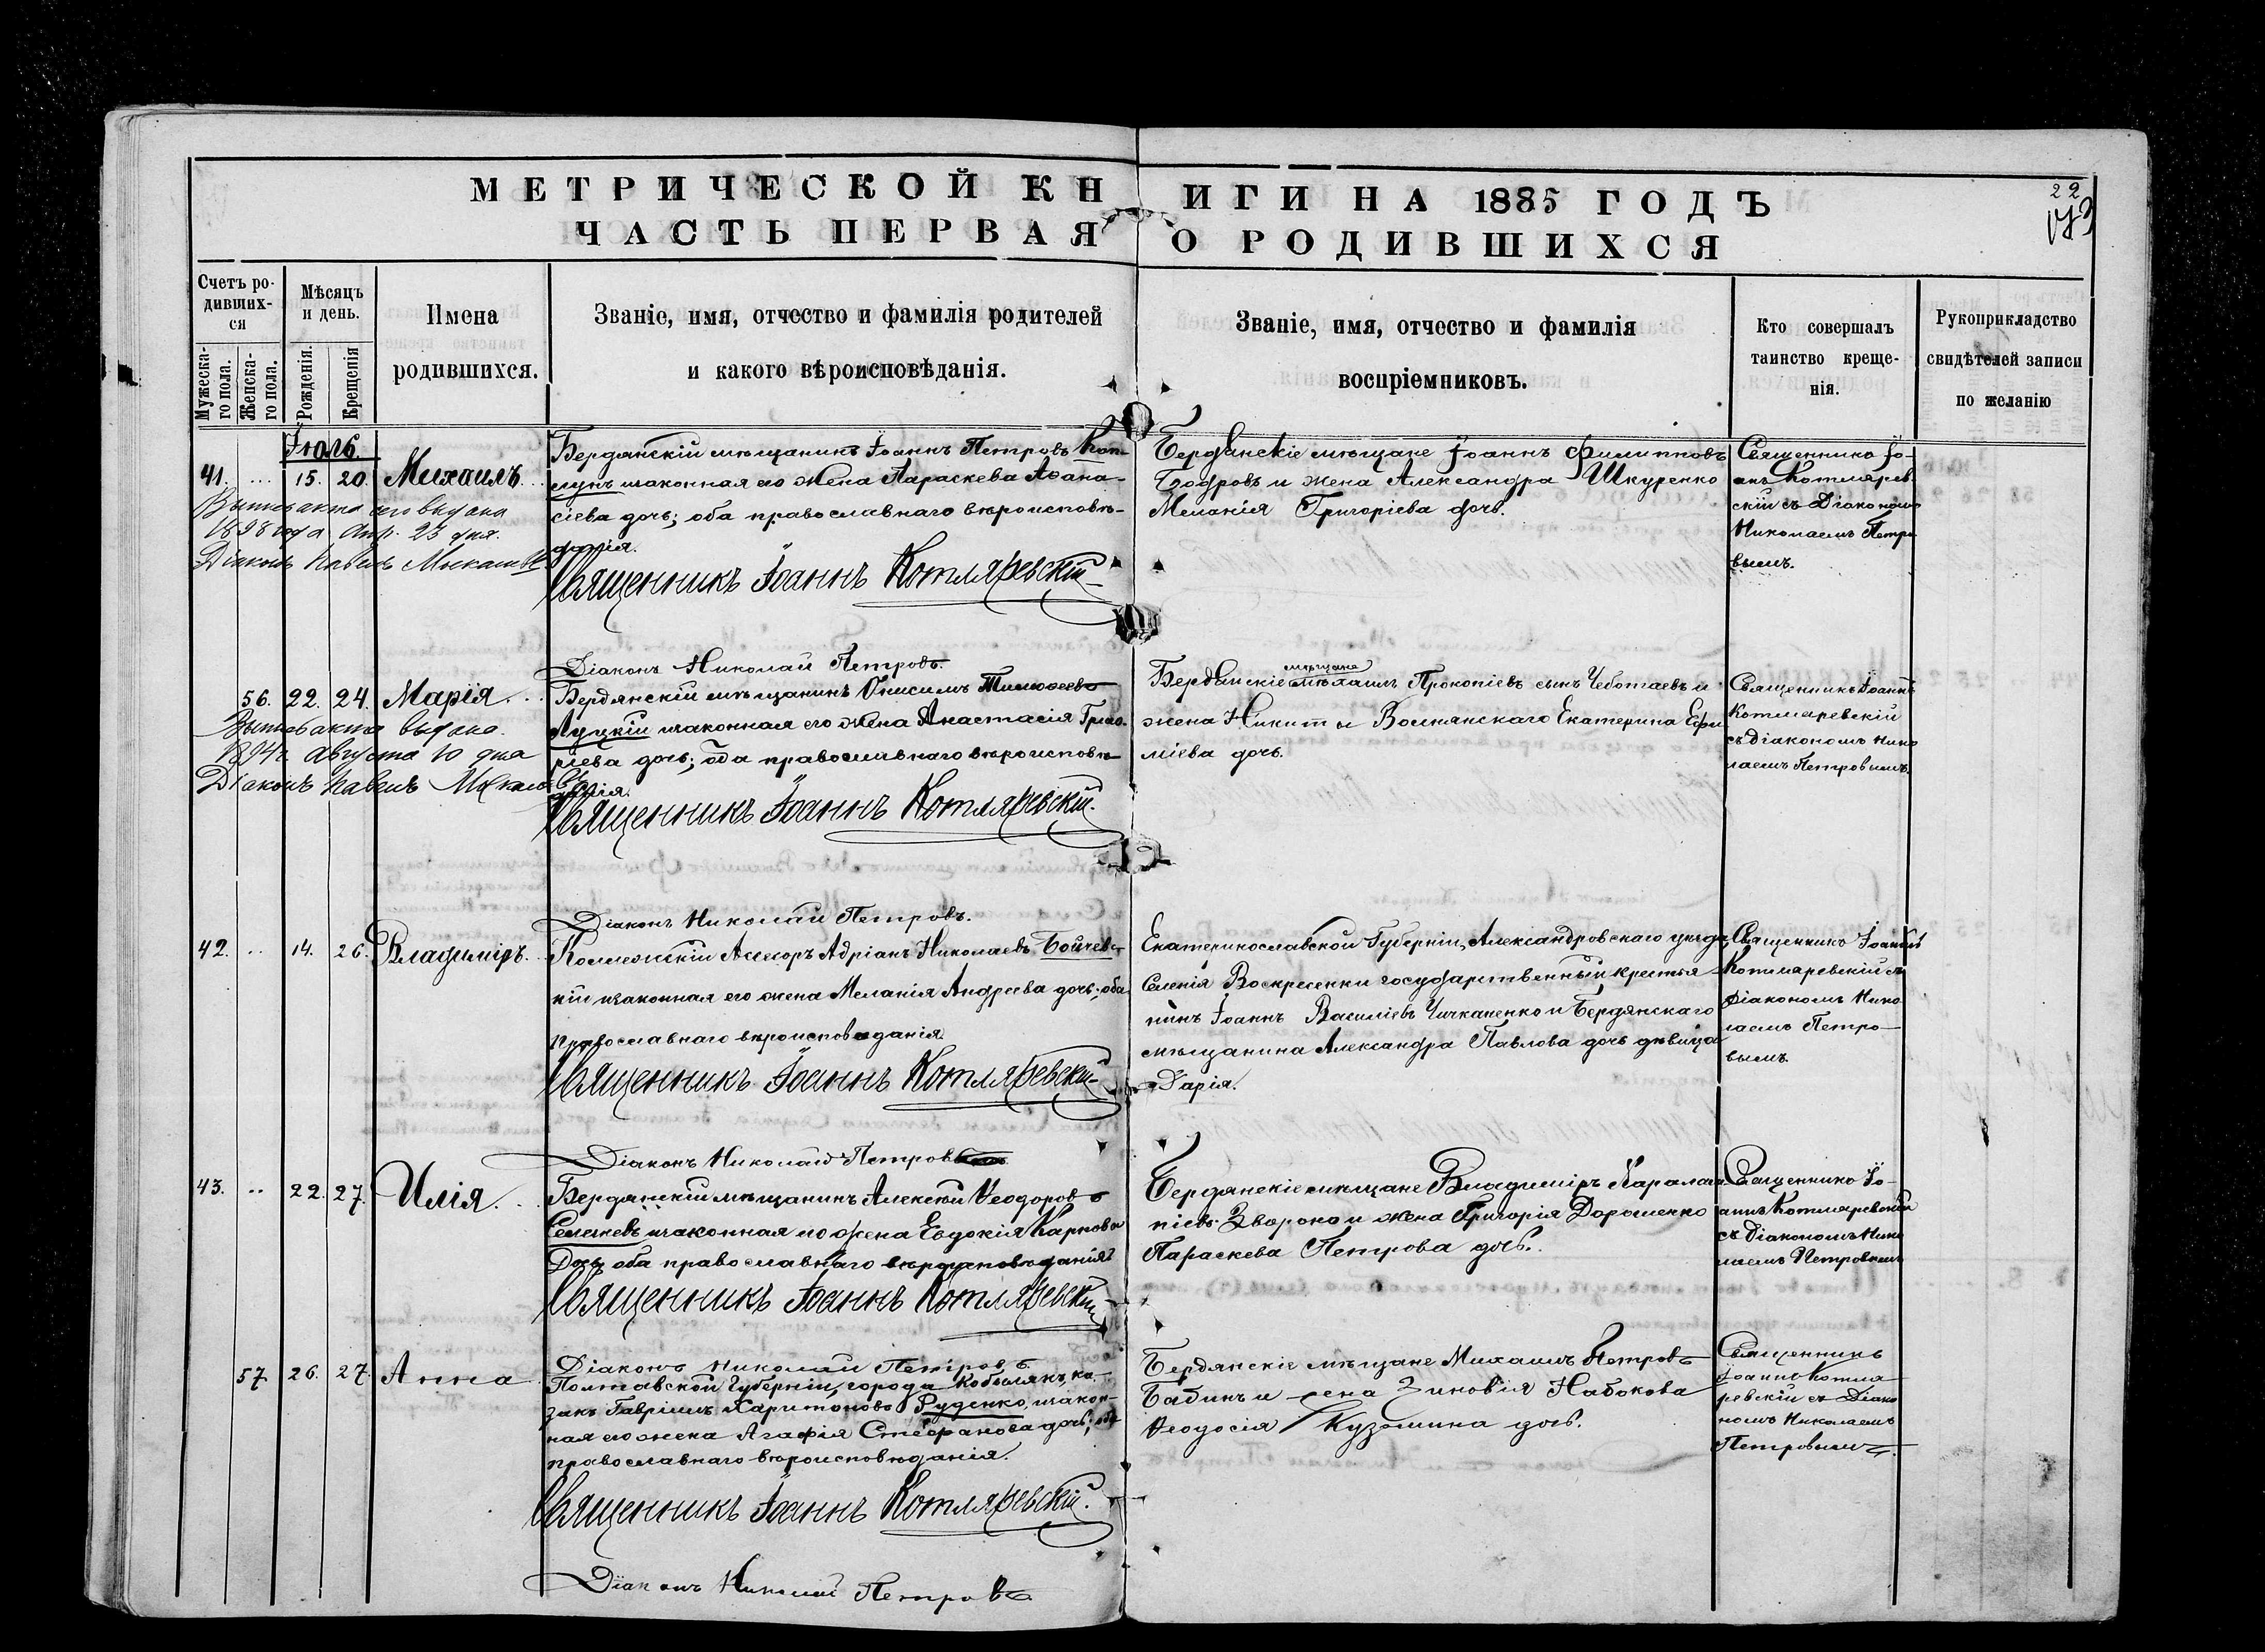 МЕТРИЧЕСКОЙ КНИГИ НА 1885 ГОДЪ
ЧАСТЬ ПЕРВАЯ О РОДИВШИХСЯ
22
Счетъ ро-
дивших-
ся
Мужеска-
го пола.
Женска-
го пола.
Мѣсяцъ
и день.
Рожденія.
Крещенія
Имена
родившихся.
Званіе, имя, отчество и фамилія родителей
и какого вѣроисповѣданія.
Званіе, имя, отчество и фамилія
воспріемниковъ.
Кто совершалъ
таинство креще-
нія.
Рукоприкладство
свидѣтелей записи
по желанію
Іюль.
41. ... 15. 20. Михаилъ.
Выпись акта сего выдана
1898 года Апр. 23 дня.
Діаконъ Павелъ
Бердянскій мѣщанинъ Іоаннъ Петровъ
и законная его жена Параскева Аѳана-
сіева дочь; оба православнаго вѣроисповѣ-
данія.
Священникъ Іоаннъ Котляревскій
Діаконъ Николай Петровъ.
Бердянскіе мѣщане Іоаннъ Филипповъ
Бодровъ и жена Александра Шкуренко
Меланія Григоріева дочь.
Священникъ Іо-
аннъ Котлярев-
скій съ Діакономъ
Николаемъ Петро-
вымъ.
56. 22. 24. Марія.
Выпись акта выдана
1894 г. Августа 10 дня
Діаконъ Павелъ
Бердянскій мѣщанинъ Онисимъ Тимоѳеевъ
Луцкій и законная его жена Анастасія Григо-
ріева дочь; оба православнаго вѣроисповѣ-
данія.
Священникъ Іоаннъ Котляревскій.
Діаконъ Николай Петровъ.
мѣщане
Бердянскіе Михаилъ Прокопіевъ сынъ Чеботаевъ и
жена Никиты Волнянскаго Екатерина Ефи-
міева дочь.
Священникъ Іоаннъ
Котляревскій
съ діакономъ Нико-
лаемъ Петровымъ.
42. .. 14. 26. Владиміръ.
Коллежскій Ассесоръ Адріанъ Николаевъ Бойчевс-
кій и законная его жена Меланія Андреева дочь; оба
православнаго вѣроисповѣданія.
Священникъ Іоаннъ Котляревскій
Діаконъ Николай Петровъ
Екатеринославской Губерніи, Александровскаго уѣзда,
Селенія Воскресенки государственный крестья-
нинъ Іоаннъ Василіевъ Чичканенко и Бердянскаго
мѣщанина Александра Павлова дочь дѣвица
Дарія.
Священникъ Іоаннъ
Котляревскій съ
Діакономъ Нико-
лаемъ Петро-
вымъ.
43. .. 22. 27. Илія.
Бердянскій мѣщанинъ Алексѣй Ѳеодоровъ
Селезневъ и законная его жена Евдокія Карпова
Дочь оба православнаго вѣроисповѣданія
Священникъ Іоаннъ Котляревскій
Діаконъ Николай Петровъ.
Бердянскіе мѣщане Владиміръ Харлам-
піевъ и жена Григорія Дорошенко
Параскева Петрова дочь.
Священникъ Іо-
аннъ Котляревскій
съ Діакономъ Нико-
лаемъ Петровымъ
57. 26. 27. Анна
Полтавской Губерніи, города Кобылякъ, ка-
закъ Гавріилъ Харитоновъ Руденко, и закон-
ная его жена Агафія Стефанова дочь; оба
православнаго вѣроисповѣданія.
Священникъ Іоаннъ Котляревскій.
Діаконъ Николай Петровъ
Бердянскіе мѣщане Михаилъ Петровъ
Бабинъ и жена Зиновія Набокова
Ѳеодосія Кузьмина дочь.
Священникъ
Іоаннъ Котля-
ревскій съ Діако-
номъ Николаемъ
Петровымъ.